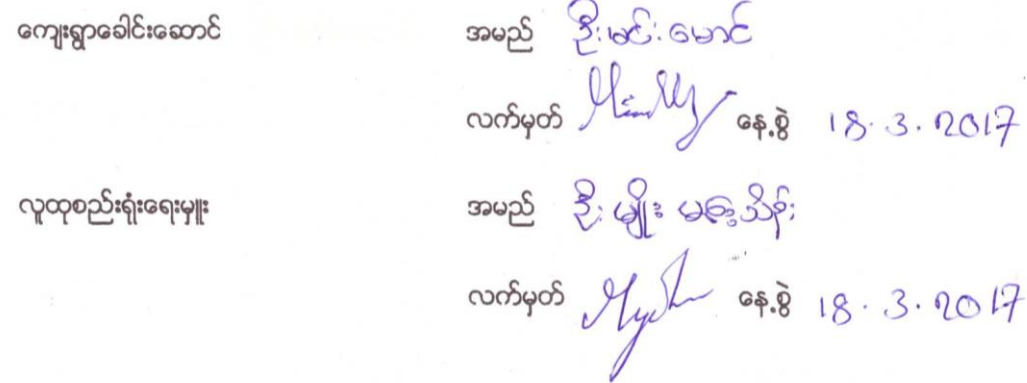 ကျေးရွာခေါင်းဆောင် အမည် ဦးမင်းမောင်
လက်မှတ် နေ့စွဲ 18.3.2017
လူထုစည်းရုံးရေးမှူး အမည် ဦးမျိုး သိန်း
လက်မှတ် နေ့စွဲ 18.3.2017